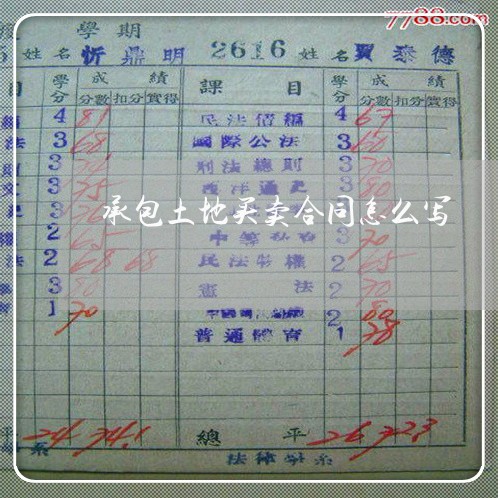 學期
5 姓名 忻鼎明 2616 姓名 賈泰德
目 學分 成績 分數 扣分 實得 課目 學分 成績 分數 扣分 實得
4 81 民法債編 4 67
法 3 68 國際公法 3 60
3 刑法總則 3 70
3 75 西洋通史 3 80
承包土地买卖合同怎么写
2 65 3 70
法 2 68 68 民法物權 2 65
3 80 憲法 2 70
1 70 2 80
普通體育 1 78
平 24 74.1 總平 26 72.3
系 法律學系
7788.com